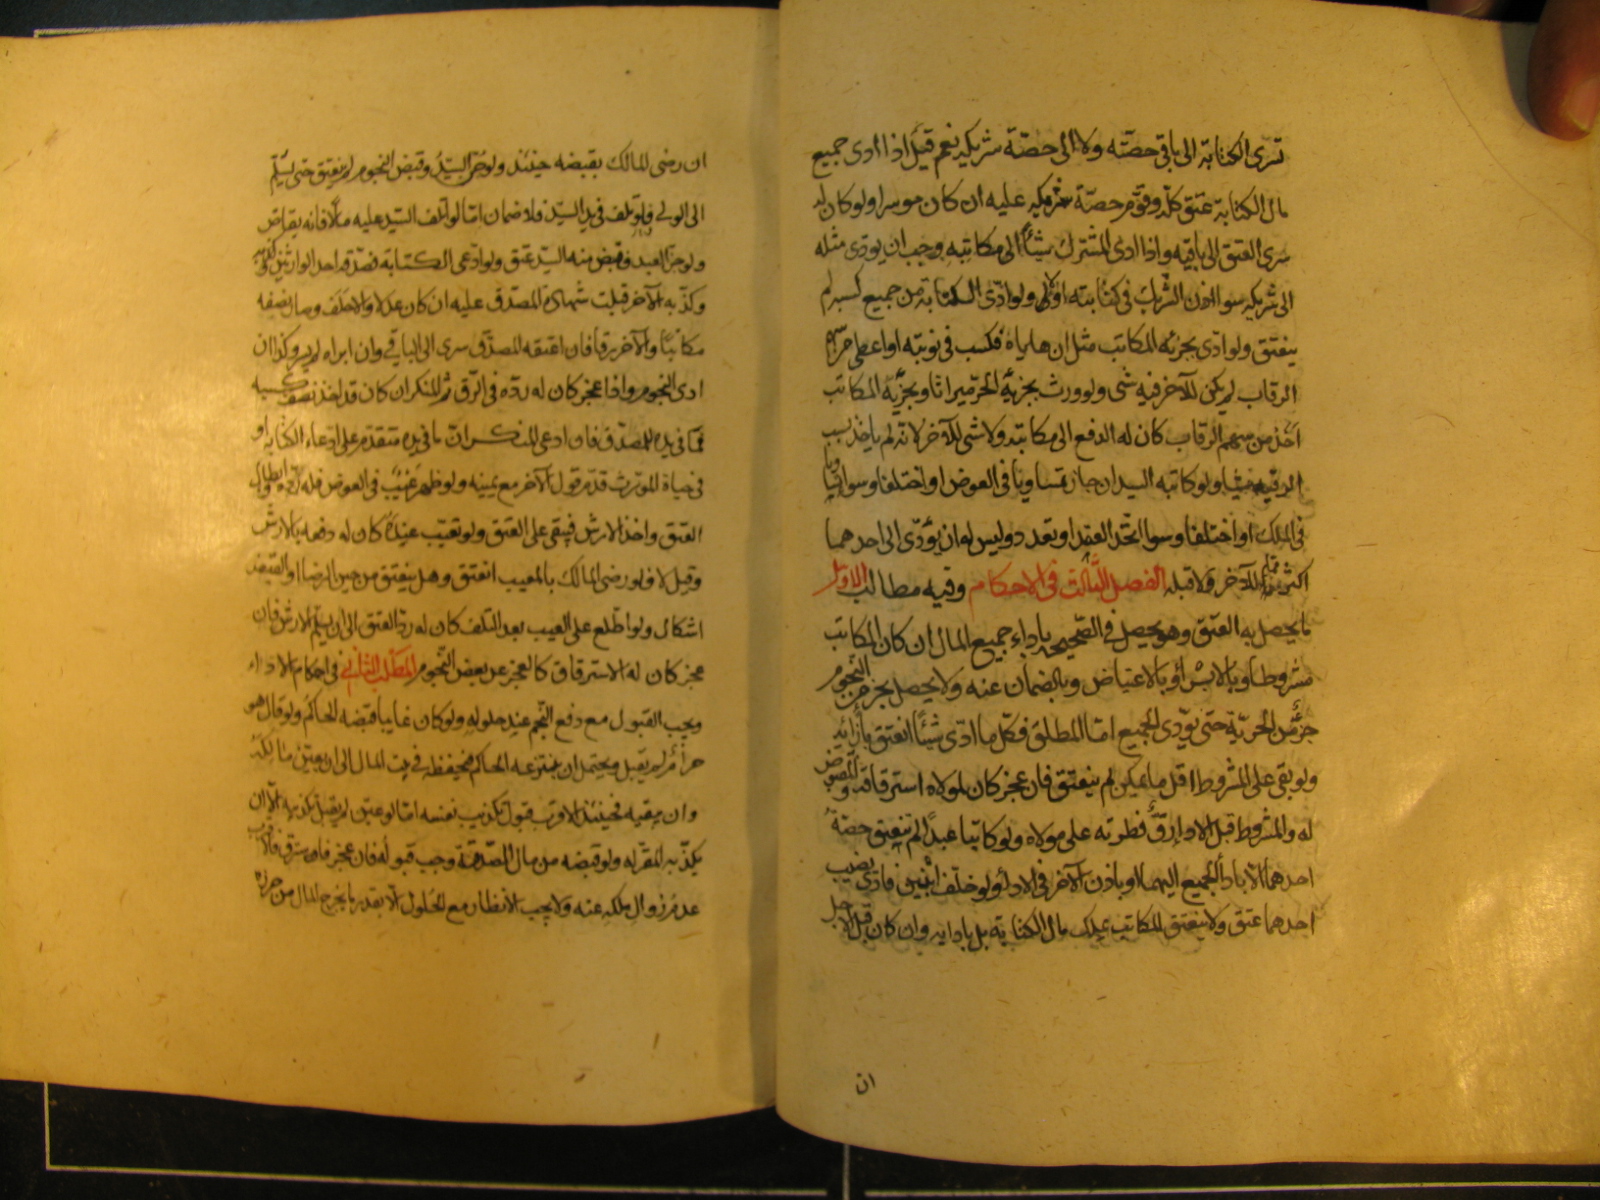 تسرى الكتابة الى باقى حصته ولا الى حصّة شريكه نعم قيل اذا ادى جميع
مال الكتابة عتق كلّه وقوّم حصّة شريكه عليه ان كان موسرا ولو كان له
سرى العتق الى باقيه واذا ادى المشترك شيئاً الى مكاتبه وجب ان يودى مثله
الى شريكه سوا اذن الشريك فى كتابته اولا ولو ادّى الكتابة من جميع كسبه لم
ينعتق ولو ادّى بجزئه المكاتب مثل ان هاياه فكسب فى نوبته او اعطى من سهم
الرقاب لم يكن للآخر فيه شى ولو ورث بجزئه الحرّ ميراثا وبجزئه المكاتب
اخذ من سهم الرقاب كان له الدفع الى مكاتبه ولا شى للآخر لانه لم ياخذ بسبب
الرقيه شيئا ولو كاتبه السيدان جاز تساويا فى العوض او اختلفا وسوا تساويا
فى الملك او اختلفا وسوا اتّحد العقد او تعدد وليس له ان يؤدّى الى احدهما
اكثر من للآخر ولا قبله الفصل الثالث فى الاحكام وفيه مطالب الاول
ما يحصل به العتق وهو يحصل فى الصّحيحه باداء جميع المال ان كان المكاتب
مشروطا وبالابرأ وبالاعتياض وبالضمان عنه ولا يحصل بجزء من النجوم
جزء من الحريّة حتى يؤدى الجميع امّا المطلق فكل ما ادّى شيئاً انعتق بأزائه
ولو بقى على المشروط اقل ما يمكن لم ينعتق فان عجز كان لمولاه استرقاقه و المقبوض
له والمشروط قبل الادا رقّ فطرته على مولاه ولو كاتبا عبداً لم تنعتق حصّة
احدهما الا بادأ الجميع اليهما او باذن الآخر فى الادأ ولو خلف ابنين فادى نصيب
احدهما عتق ولا ينعتق المكاتب بملك مال الكتابة بل بادايه وان كان قبل الاجل
ان
ان رضى المالك بقبضه حينئذ ولو جنّ السيّد وقبض النجوم لم ينعتق حتى يسلّم
الى الولى ولو تلف فى يد السيّد فلا ضمان امّا لو اتلف السيّد عليه مالا فانه يقاص
ولو جنّ العبد وقبض منه السيّد عتق ولو ادّعى الكتابة فصدّقه احد الوارثين
وكذّبه الآخر قبلت شهادة المصدّق عليه ان كان عدلا والا حلف وصار نصفه
مكاتبًا والآخر رقا فان اعتقه المصدّق سرى الى الباقى وان ابراه لم يسر وكذا ان
ادى النجوم واذا عجز كان له ردّه فى الرّق ثم المنكر ان كان قد اخذ نصف كسبه
فما فى يده للمصدّق فان ادعى المنكر ان ما فى يده متقدم على ادّعاء الكتابه او
فى حياة المورث قدّم قول الآخر مع يمينه ولو ظهر عيب فى العوض فله ردّه وابطال
العتق واخذ الارش فيبقى على العتق ولو تعيّب عنده كان له دفعه بالارش
وقيل لا فلو رضى المالك بالمعيب انعتق وهل ينعتق من حين الرضا او القبض
اشكال ولو اطّلع على العيب بعد التلف كان له ردّ العتق الى ان يسلّم الارش فان
عجز كان له الاسترقاق كالعجز عن بعض النّجوم المطلب الثانى فى احكام الاداء
ويجب القبول مع دفع النّجم عند حلوله ولو كان غايبا قبضه الحاكم ولو قال هو
حرام لم يقبل ويحتمل ان ينتزعه الحاكم فيحفظه فى بيت المال الى ان يعيّن مالكه
وان يبقيه فحينئذ الاقرب قبول تكذيب نفسه امّا لو عيّن لم يقبل تكذيبه الّا ان
يكذّبه المقرّ له ولو قبضه من مال الصّدقة وجب قبوله فان عجز فاسترق فالاقرب
عدم زوال ملكه عنه ولا يجب الانظار مع الحلول الا بقدر ما يخرج المال من حرزه